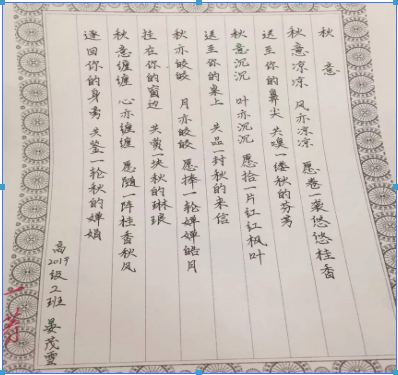 秋意
秋意凉凉 风亦凉凉 愿卷一袭悠悠桂香
送至你的鼻尖 共嗅一缕秋的芬芳
秋意沉沉 叶亦沉沉 愿拾一片红红枫叶
送至你的桌上 共品一封秋的来信
秋亦皎皎 月亦皎皎 愿捧一轮婵婵皓月
挂在你的窗边 共赏一块秋的琳琅
秋意缠缠 心亦缠缠 愿随一阵桂香秋风
逐回你的身旁 共鉴一轮秋的婵娟
高2019级2班 晏茂雪